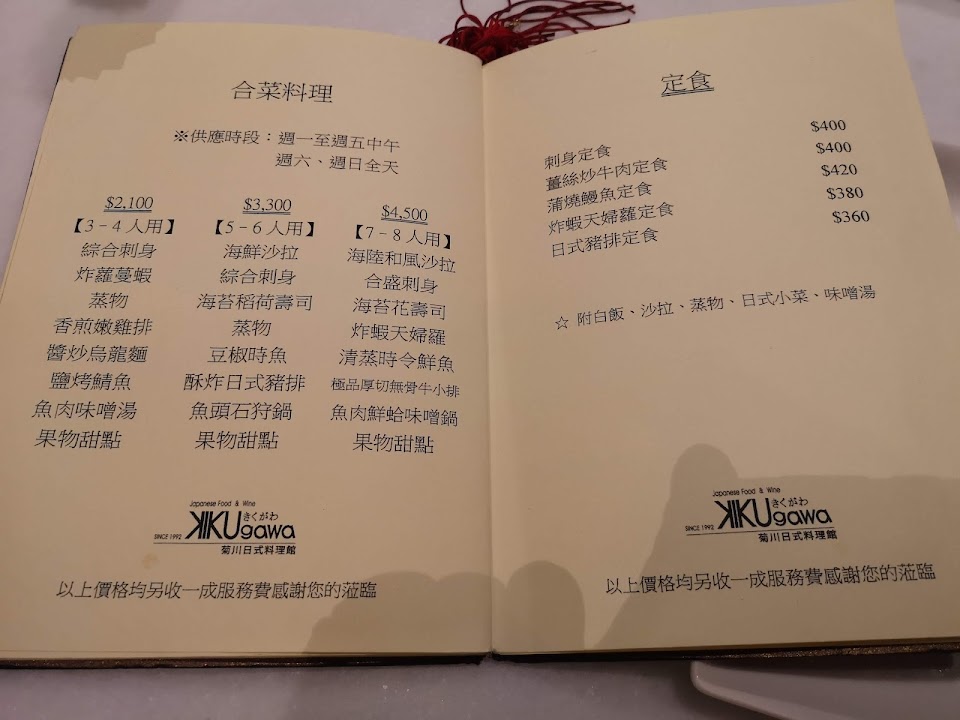 合菜料理
※供應時段：週一至週五中午
週六、週日全天
$2,100
【3－4人用】
綜合刺身
炸蘿蔓蝦
蒸物
香煎嫩雞排
醬炒烏龍麵
鹽烤鯖魚
魚肉味噌湯
果物甜點
$3,300
【5－6人用】
海鮮沙拉
綜合刺身
海苔稻荷壽司
蒸物
豆椒時魚
酥炸日式豬排
魚頭石狩鍋
果物甜點
$4,500
【7－8人用】
海陸和風沙拉
合盛刺身
海苔花壽司
炸蝦天婦羅
清蒸時令鮮魚
極品厚切無骨牛小排
魚肉鮮蛤味噌鍋
果物甜點
Japanese Food & Wine
SINCE 1992 KIKUgawa きくがわ
菊川日式料理館
以上價格均另收一成服務費感謝您的蒞臨
定食
刺身定食 $400
薑絲炒牛肉定食 $400
蒲燒鰻魚定食 $420
炸蝦天婦蘿定食 $380
日式豬排定食 $360
☆ 附白飯、沙拉、蒸物、日式小菜、味噌湯
Japanese Food & Wine
SINCE 1992 KIKUgawa きくがわ
菊川日式料理館
以上價格均另收一成服務費感謝您的蒞臨